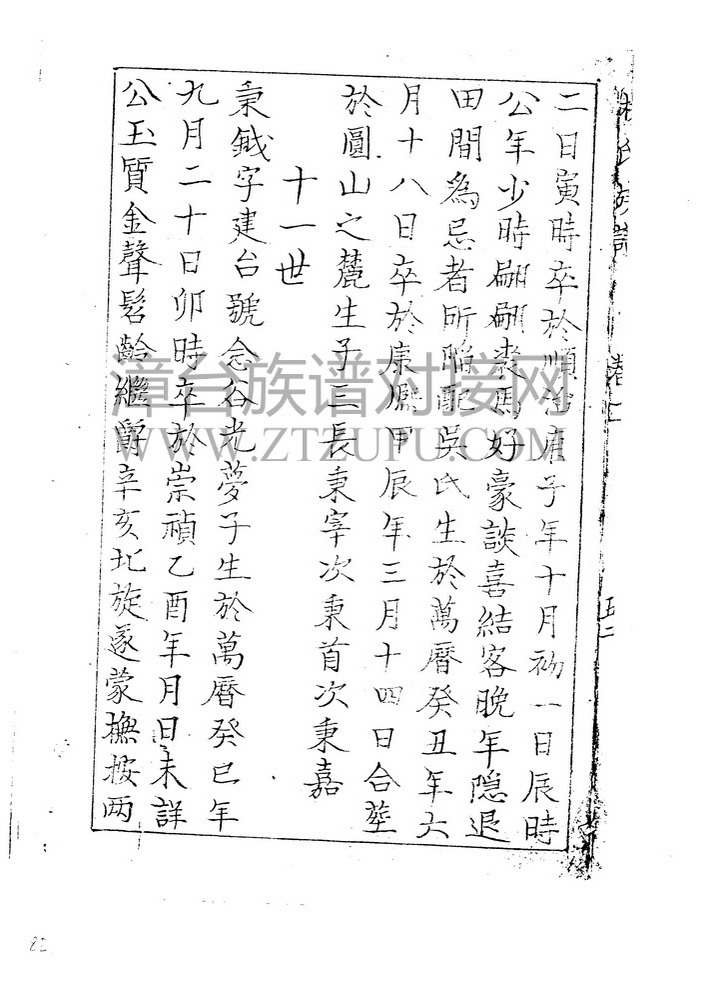 二日寅時卒於順治庚子年十月初一日辰時
公年少時翩翩裘馬好豪談喜結客晚年隐退
田間為忌者所陥配吳氏生於萬曆癸丑年六
月十八日卒於康熈甲辰年三月十四日合塟
於圓山之麓生子三長秉宰次秉首次秉嘉
十一世
秉鉞字建台號念谷光夢子生於萬曆癸巳年
九月二十日卯時卒於崇禎乙酉年月日未詳
公玉質金聲髫齡繼爵辛亥北旋遂蒙撫按两
漳台族谱对接网
WWW.ZTZUFU.COM